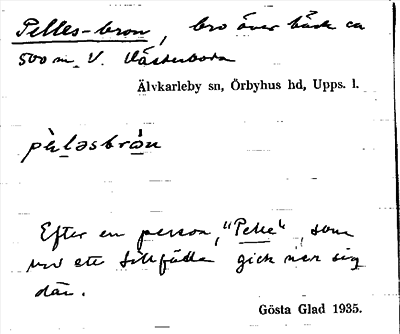 Pelles-bron, bro över bäck ca
500 m. V. Västerboda
Älvkarleby sn, Örbyhus hd, Upps. l.
pèləsbrón
Efter en person, "Pelle", som
vid ett tillfälle gick ner sig
där.
Gösta Glad 1935.